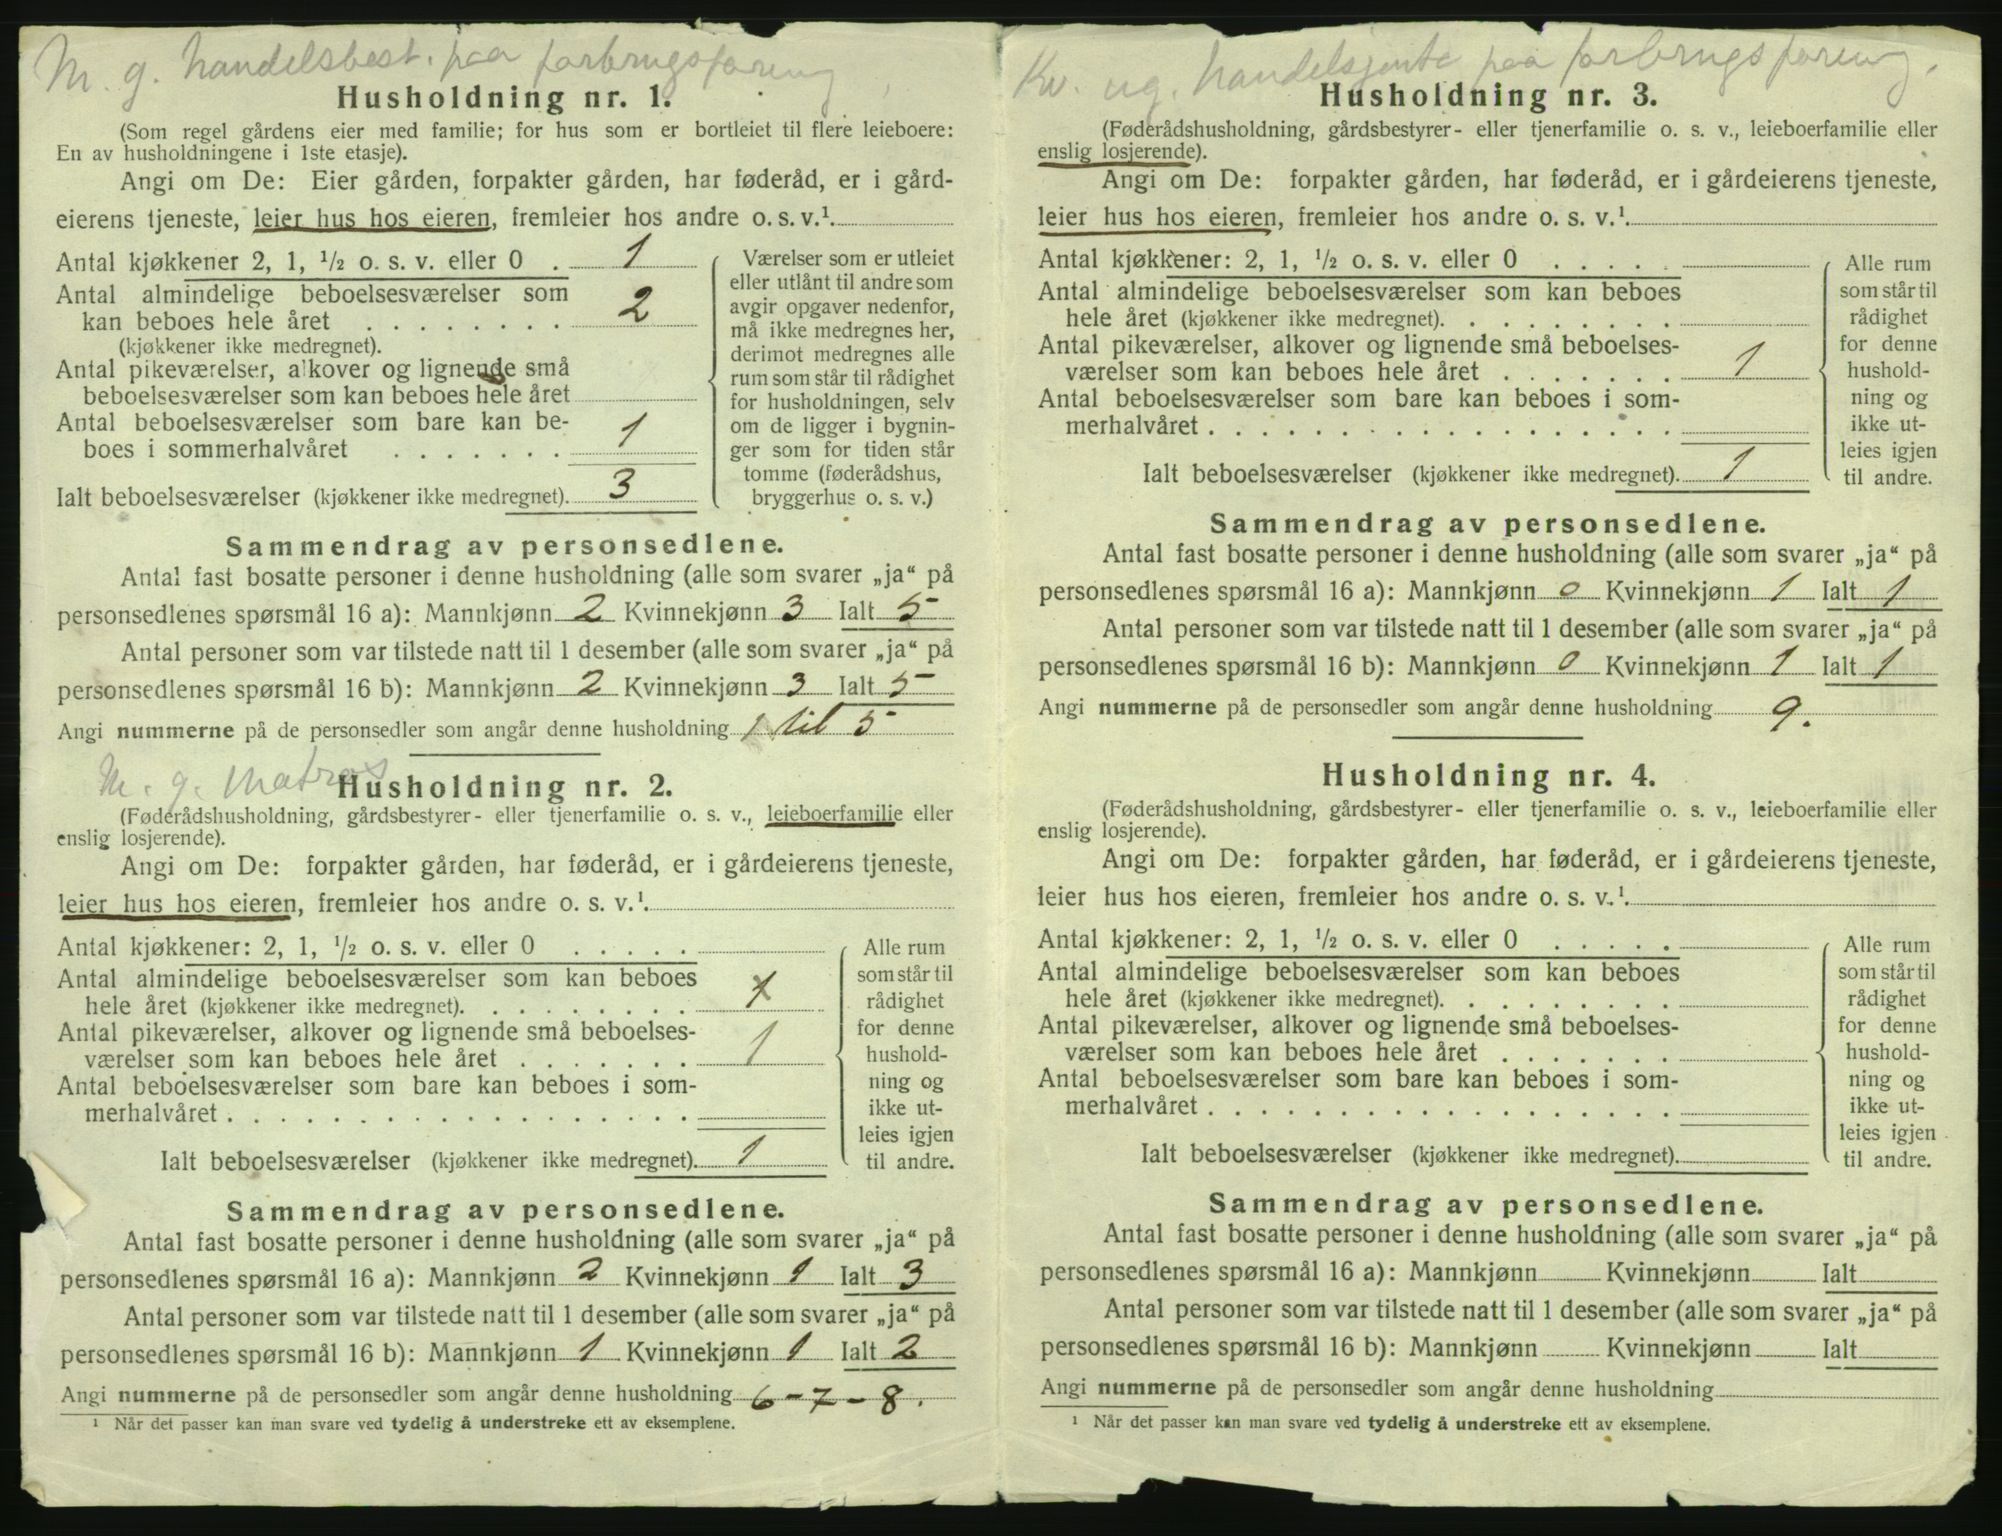 M. g. handelsbest. paa forbrugsforening
Husholdning nr. 1.
(Som regel gårdens eier med familie; for hus som er bortleiet til flere leieboere:
En av husholdningene i 1ste etasje).
Angi om De: Eier gården, forpakter gården, har føderåd, er i gård-
eierens tjeneste, leier hus hos eieren, fremleier hos andre o. s. v.¹
Antal kjøkkener 2, 1, ½ o. s. v. eller 0 . 1
Antal almindelige beboelsesværelser som
kan beboes hele året . . . . . . . . 2
(kjøkkener ikke medregnet).
Antal pikeværelser, alkover og lignende små
beboelsesværelser som kan beboes hele året
Antal beboelsesværelser som bare kan be-
boes i sommerhalvåret . . . . . . . 1
Ialt beboelsesværelser (kjøkkener ikke medregnet). 3
Værelser som er utleiet
eller utlånt til andre som
avgir opgaver nedenfor,
må ikke medregnes her,
derimot medregnes alle
rum som står til rådighet
for husholdningen, selv
om de ligger i bygnin-
ger som for tiden står
tomme (føderådshus,
bryggerhus o. s. v.)
Sammendrag av personsedlene.
Antal fast bosatte personer i denne husholdning (alle som svarer „ja“ på
personsedlenes spørsmål 16 a): Mannkjønn 2 Kvinnekjønn 3 Ialt 5
Antal personer som var tilstede natt til 1 desember (alle som svarer „ja“ på
personsedlenes spørsmål 16 b): Mannkjønn 2 Kvinnekjønn 3 Ialt 5
Angi nummerne på de personsedler som angår denne husholdning 1 til 5
M. g. Matros
Husholdning nr. 2.
(Føderådshusholdning, gårdsbestyrer- eller tjenerfamilie o. s. v., leieboerfamilie eller
enslig losjerende).
Angi om De: forpakter gården, har føderåd, er i gårdeierens tjeneste,
leier hus hos eieren, fremleier hos andre o. s. v.¹
Antal kjøkkener: 2, 1, ½ o. s. v. eller 0 . . . . .
Antal almindelige beboelsesværelser som kan beboes
hele året (kjøkkener ikke medregnet). . . . . . . . . 1
Antal pikeværelser, alkover og lignende små beboelses-
værelser som kan beboes hele året . . . . . . . 1
Antal beboelsesværelser som bare kan beboes i som-
merhalvåret . . . . . . . . . . . . . . . . . .
Ialt beboelsesværelser (kjøkkener ikke medregnet). 1
Alle rum
som står til
rådighet
for denne
hushold-
ning og
ikke ut-
leies igjen
til andre.
Sammendrag av personsedlene.
Antal fast bosatte personer i denne husholdning (alle som svarer „ja“ på
personsedlenes spørsmål 16 a): Mannkjønn 2 Kvinnekjønn 1 Ialt 3
Antal personer som var tilstede natt til 1 desember (alle som svarer „ja“ på
personsedlenes spørsmål 16 b): Mannkjønn 1 Kvinnekjønn 1 Ialt 2
Angi nummerne på de personsedler som angår denne husholdning 6 - 7 - 8.
¹ Når det passer kan man svare ved tydelig å understreke ett av eksemplene.
Kv. ug. handelsjente paa forbrugsforening.
Husholdning nr. 3.
(Føderådshusholdning, gårdsbestyrer- eller tjenerfamilie o. s. v., leieboerfamilie eller
enslig losjerende).
Angi om De: forpakter gården, har føderåd, er i gårdeierens tjeneste,
leier hus hos eieren, fremleier hos andre o. s. v.¹
Antal kjøkkener: 2, 1, ½ o. s. v. eller 0 . . . . .
Antal almindelige beboelsesværelser som kan beboes
hele året (kjøkkener ikke medregnet). . . . . . . . .
Antal pikeværelser, alkover og lignende små beboelses-
værelser som kan beboes hele året . . . . . . . 1
Antal beboelsesværelser som bare kan beboes i som-
merhalvåret . . . . . . . . . . . . . . . . . .
Ialt beboelsesværelser (kjøkkener ikke medregnet). 1
Alle rum
som står til
rådighet
for denne
hushold-
ning og
ikke ut-
leies igjen
til andre.
Sammendrag av personsedlene.
Antal fast bosatte personer i denne husholdning (alle som svarer „ja“ på
personsedlenes spørsmål 16 a): Mannkjønn 0 Kvinnekjønn 1 Ialt 1
Antal personer som var tilstede natt til 1 desember (alle som svarer „ja“ på
personsedlenes spørsmål 16 b): Mannkjønn 0 Kvinnekjønn 1 Ialt 1
Angi nummerne på de personsedler som angår denne husholdning 9.
Husholdning nr. 4.
(Føderådshusholdning, gårdsbestyrer- eller tjenerfamilie o. s. v., leieboerfamilie eller
enslig losjerende).
Angi om De: forpakter gården, har føderåd, er i gårdeierens tjeneste,
leier hus hos eieren, fremleier hos andre o. s. v.¹
Antal kjøkkener: 2, 1, ½ o. s. v. eller 0 . . . . .
Antal almindelige beboelsesværelser som kan beboes
hele året (kjøkkener ikke medregnet). . . . . . . . .
Antal pikeværelser, alkover og lignende små beboelses-
værelser som kan beboes hele året . . . . . . .
Antal beboelsesværelser som bare kan beboes i som-
merhalvåret . . . . . . . . . . . . . . . . . .
Ialt beboelsesværelser (kjøkkener ikke medregnet).
Alle rum
som står til
rådighet
for denne
hushold-
ning og
ikke ut-
leies igjen
til andre.
Sammendrag av personsedlene.
Antal fast bosatte personer i denne husholdning (alle som svarer „ja“ på
personsedlenes spørsmål 16 a): Mannkjønn Kvinnekjønn Ialt
Antal personer som var tilstede natt til 1 desember (alle som svarer „ja“ på
personsedlenes spørsmål 16 b): Mannkjønn Kvinnekjønn Ialt
Angi nummerne på de personsedler som angår denne husholdning
¹ Når det passer kan man svare ved tydelig å understreke ett av eksemplene.